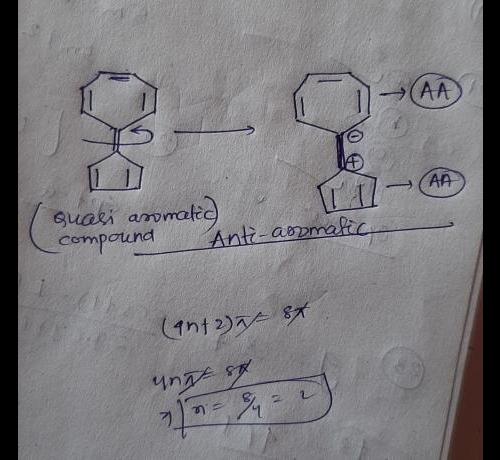 AA
⊖
⊕
AA
(Quasi aromatic)
compound
Anti-aromatic
(4n+2)π = 8π
4nπ = 8π
n = 8/4 = 2